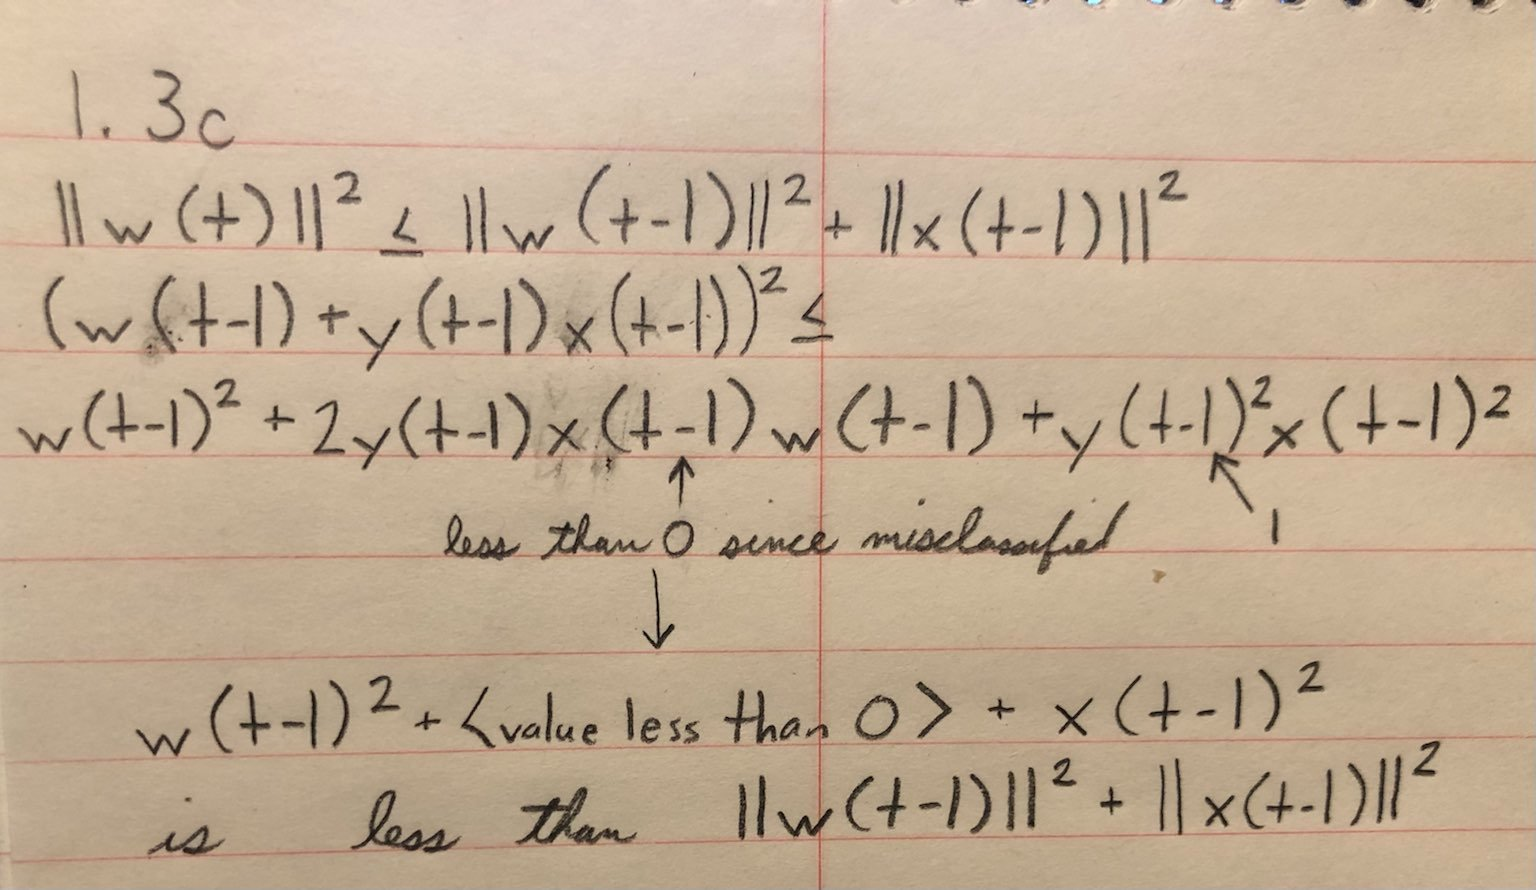 1. 3c
||w(t)||² ≤ ||w(t-1)||² + ||x(t-1)||²
(w(t-1) + y(t-1)x(t-1))² ≤
w(t-1)² + 2y(t-1)x(t-1)w(t-1) + y(t-1)²x(t-1)²
↑ ↖
less than 0 since misclassified 1
↓
w(t-1)² + <value less than 0> + x(t-1)²
is less than ||w(t-1)||² + ||x(t-1)||²